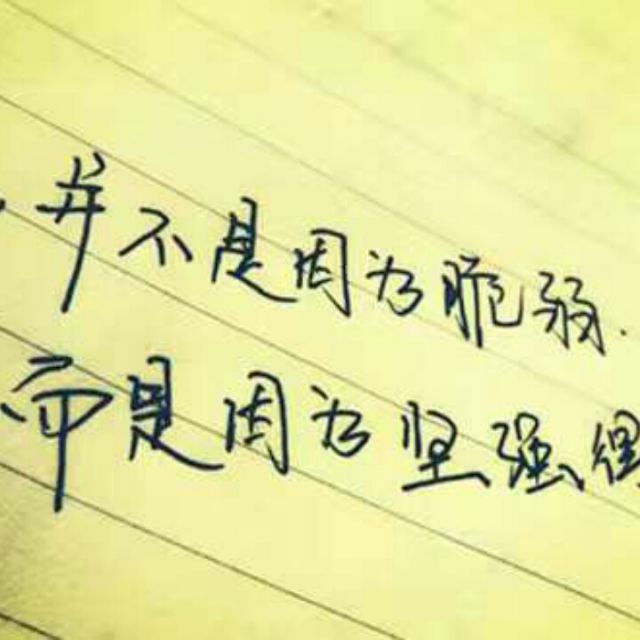 并不是因为脆弱.
而是因为坚强得